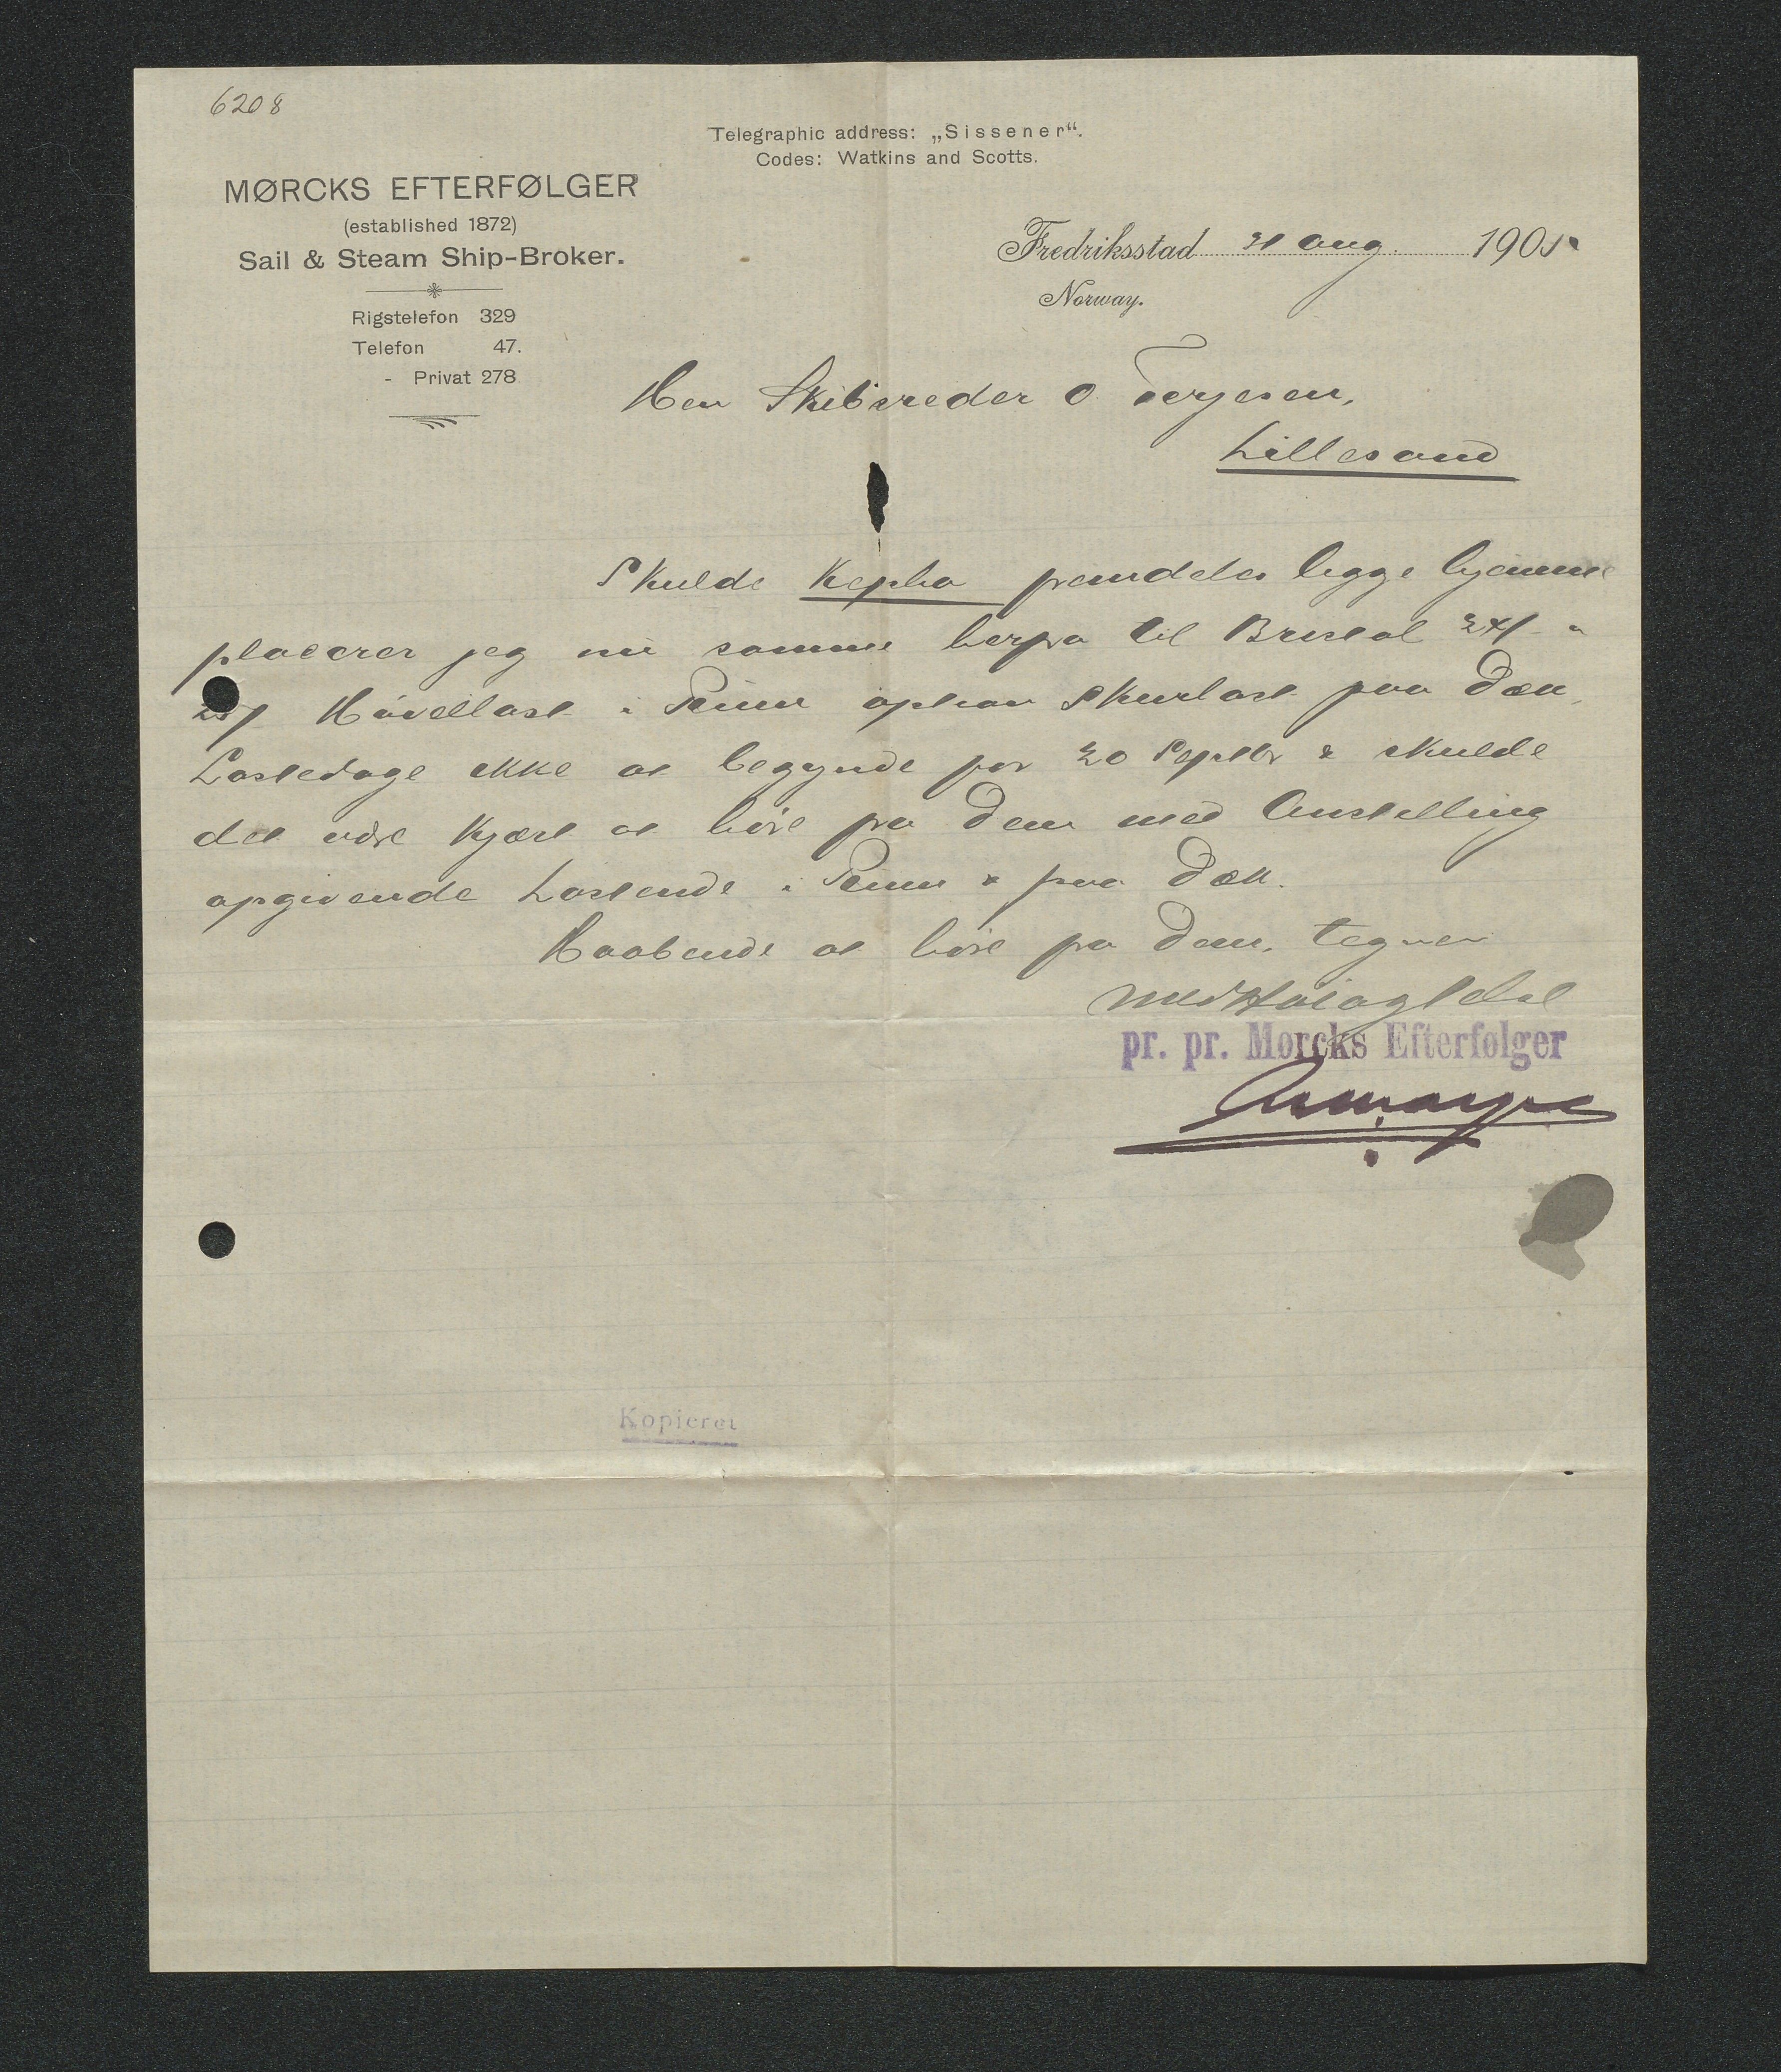 6208
Telegraphic address: „Sissener“.
Codes: Watkins and Scotts.
MØRCKS EFTERFØLGER
(established 1872)
Sail & Steam Ship-Broker.
Rigstelefon 329
Telefon 47.
- Privat 278
Fredriksstad 31 Aug. 1905
Norway.
Herr Skibsreder O. Terjesen,
Lillesand
Skulde Kepha fremdeles ligge hjemme
placerer jeg nu samme herfra til Bristol
Høvellast i Rum Skurlast paa Dæk,
Lastedage ikke at begynde før 20 Septbr & skulde
det være kjært at høre fra Dem med Anstilling
opgivende Lastende i Rum & paa Dæk.
Haabende at høre fra Dem, tegner
med Høiagtelse
pr. pr. Mørcks Efterfølger
Kopieret